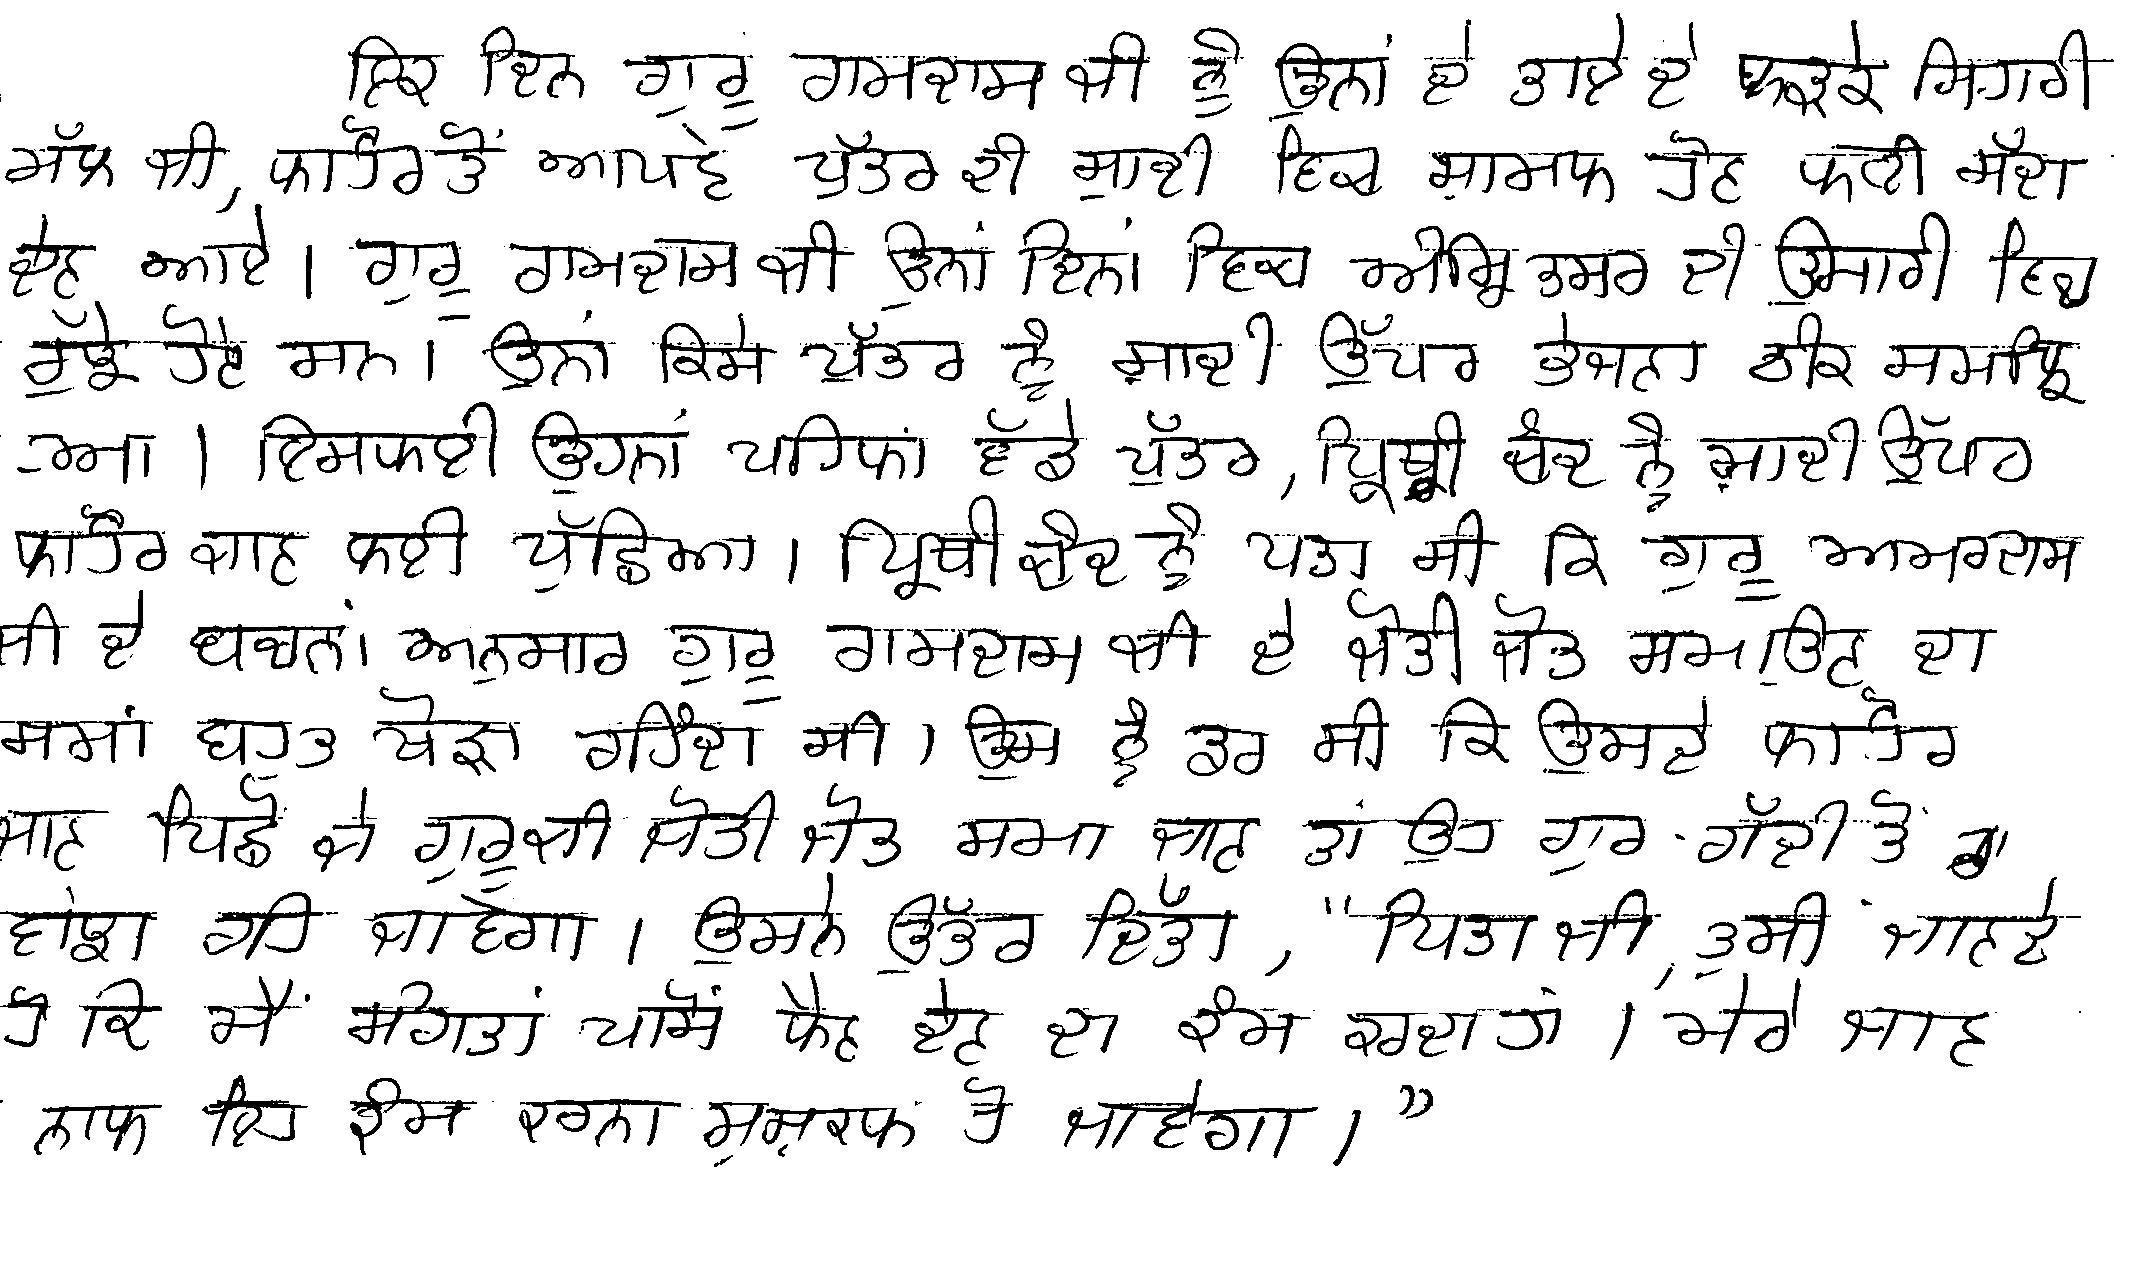 ਇਕ ਦਿਨ ਗੁਰੂ ਰਾਮਦਾਸ ਜੀ ਨੂੰ ਉਨਾਂ ਦੇ ਤਾਏ ਦੇ ਲੜਕੇ ਸਿਹਾਰੀ
ਮੱਲ ਜੀ, ਲਾਹੌਰ ਤੋਂ ਆਪਣੇ ਪੁੱਤਰ ਦੀ ਸ਼ਾਦੀ ਵਿਚ ਸ਼ਾਮਲ ਹੋਣ ਲਈ ਸੱਦਾ
ਦੇਣ ਆਏ। ਗੁਰੂ ਰਾਮਦਾਸ ਜੀ ਉਨਾਂ ਦਿਨਾਂ ਵਿਚ ਅੰਮ੍ਰਿਤਸਰ ਦੀ ਉਸਾਰੀ ਵਿਚ
ਰੁੱਝੇ ਹੋਏ ਸਨ। ਉਨਾਂ ਕਿਸੇ ਪੁੱਤਰ ਨੂੰ ਸ਼ਾਦੀ ਉੱਪਰ ਭੇਜਣਾ ਠੀਕ ਸਮਝਿ
-ਆ। ਇਸਲਈ ਉਹਨਾਂ ਪਹਿਲਾਂ ਵੱਡੇ ਪੁੱਤਰ, ਪ੍ਰਿਥੀ ਚੰਦ ਨੂੰ ਸ਼ਾਦੀ ਉੱਪਰ
ਲਾਹੌਰ ਜਾਣ ਲਈ ਪੁੱਛਿਆ। ਪ੍ਰਿਥੀ ਚੰਦ ਨੂੰ ਪਤਾ ਸੀ ਕਿ ਗੁਰੂ ਅਮਰਦਾਸ
ਜੀ ਦੇ ਬਚਨਾਂ ਅਨੁਸਾਰ ਗੁਰੂ ਰਾਮਦਾਸ ਜੀ ਦੇ ਜੋਤੀ ਜੋਤ ਸਮਾਉਣ ਦਾ
ਸਮਾਂ ਬਹੁਤ ਥੋੜਾ ਰਹਿੰਦਾ ਸੀ। ਉਸ ਨੂੰ ਡਰ ਸੀ ਕਿ ਉਸਦੇ ਲਾਹੌਰ
ਜਾਣ ਪਿਛੋਂ ਜੇ ਗੁਰੂ ਜੀ ਜੋਤੀ ਜੋਤ ਸਮਾ ਜਾਣ ਤਾਂ ਉਹ ਗੁਰ-ਗੱਦੀ ਤੋਂ
ਵਾਂਝਾ ਰਹਿ ਜਾਵੇਗਾ। ਉਸਨੇ ਉੱਤਰ ਦਿੱਤਾ, "ਪਿਤਾ ਜੀ, ਤੁਸੀਂ ਜਾਣਦੇ
ਹੋ ਕਿ ਮੈਂ ਸੰਗਤਾਂ ਪਾਸੋਂ ਲੈਣ ਦੇਣ ਦਾ ਕੰਮ ਕਰਦਾ ਹਾਂ। ਮੇਰੇ ਜਾਣ
ਨਾਲ ਇਹ ਕੰਮ ਕਰਨਾ ਮੁਸ਼ਕਲ ਹੋ ਜਾਵੇਗਾ।"